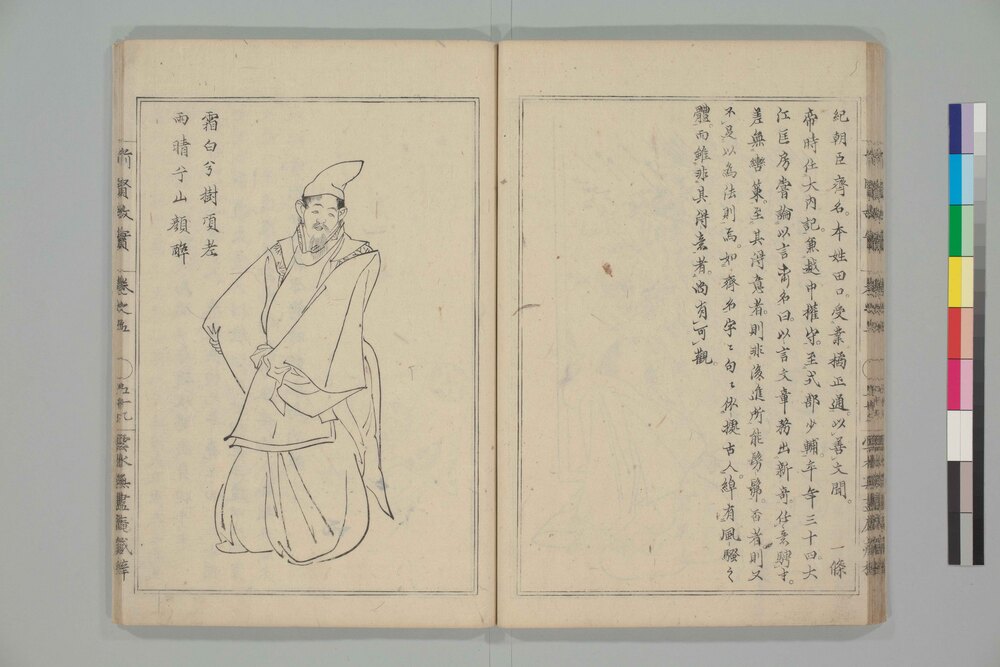 紀朝臣齊名。本姓田口。受業橘正通。以善文聞。一條
帝時任大内記。兼越中權守。至式部少輔。卒年三十四。大
江匡房嘗論以言齊名曰。以言文章。務出新奇。任意騁才。
差無轡策。至其得意者。則非後進所能髣髴。否者則又
不足以爲法則焉。如齊名字々句々依據古人。綽有風騷之
體。而雖非其得意者。尚有可觀。
霜白兮樹頂老
雨晴兮山顔醉
前賢故實
卷之五
雲水無盡庵藏梓